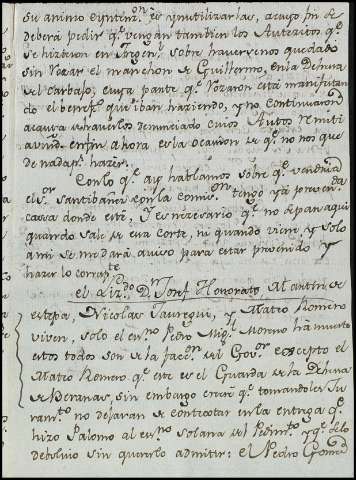 su animo e yntenz.on es ynutilizarlas, acuyo fin se
debera pedir q.e vengan tambien los Autezitos q.e
se hizieron en Argen.l sobre havernos quedado
sin Rozar el manchon de Guillermo, en la Dehesa
del Carbajo, cuya parte q.e Rozaron está manifestan
do el benef.o que iban haziendo, y no continuaron
a causa de haverlo denunciado cuios Autos remiti
a v.m. en fin ahora es la ocasion de q.e no nos que
de nada p.r hazer.
Con lo q.e ay hablamos sobre q.e vendria
el s.or Santibañez con la comis.on tengo ya preveni
da
casa donde esté, y es necesario q.e no sepan aqui
quando sale de esa Corte, ni quando viene y solo
a mi se me dará aviso para estar prevenido y
hazer lo corresp.te
el Liz.do D.n Josef Honorato, Martin de
estepa, Nicolas Jauregui, y Mateo Romero
viven, solo el es.no Pedro Mig.l Moreno ha muerto
estos todos son de la facc.on del Gov.or excepto el
Mateo Romero q.e este es el Guarda de la Dehesa
de Veranas, sin embargo creere q.e tomandoles Ju
ram.to no dejaran de contextar en la entrega q.e
hizo Palomo al es.no Solana del Pedim.to y q.e se lo
debolvio sin quererlo admitir: el Pedro Gomez